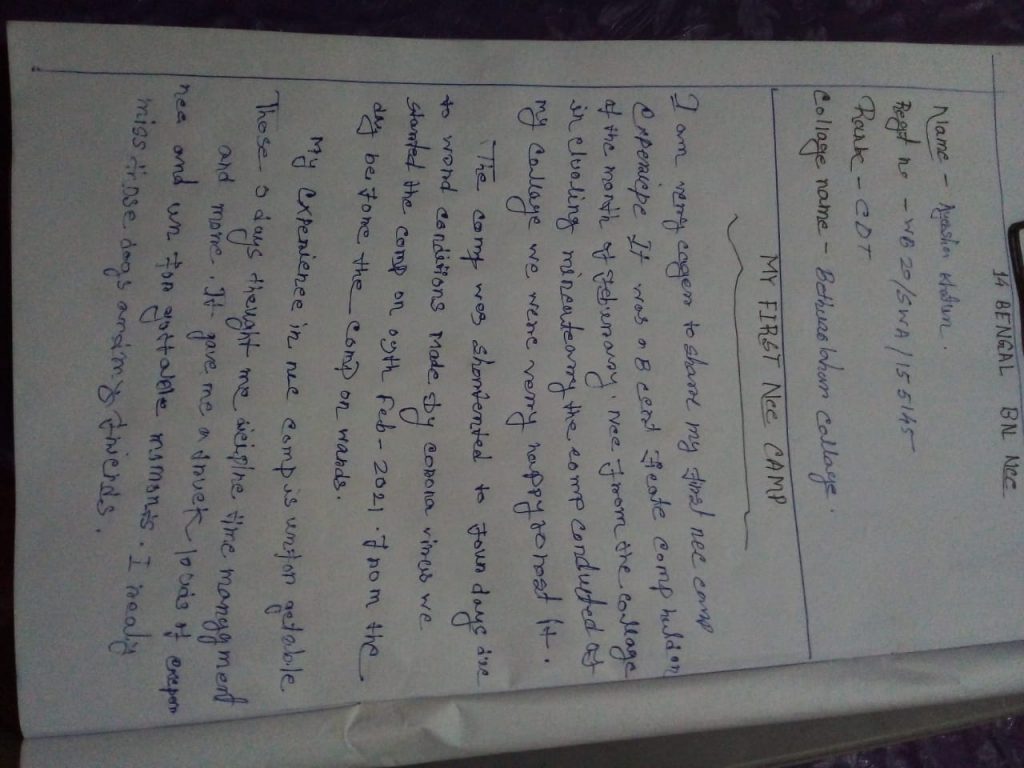 14 BENGAL BN Ncc
Name - Khatun.
Regt no - WB20/SWA/155145
Rank - CDT
Collage name - Bethuadahari Collage.
MY FIRST Ncc CAMP
I am verry eager to share my first ncc camp
It was a B camp held on
of the month of February. ncc from the collage
the comp conducted at
my collage we were verry happy to host it.
The comp was shortented to town days due
to worid conditions made by corona virus we
started the comp on 09th Feb-2021. from the
day before the comp on wards.
My experience in ncc comp is unfor getable
These days thought me time
and more. It gave me a of
nce and un for gettable moments. I realy
miss those days and my friends.